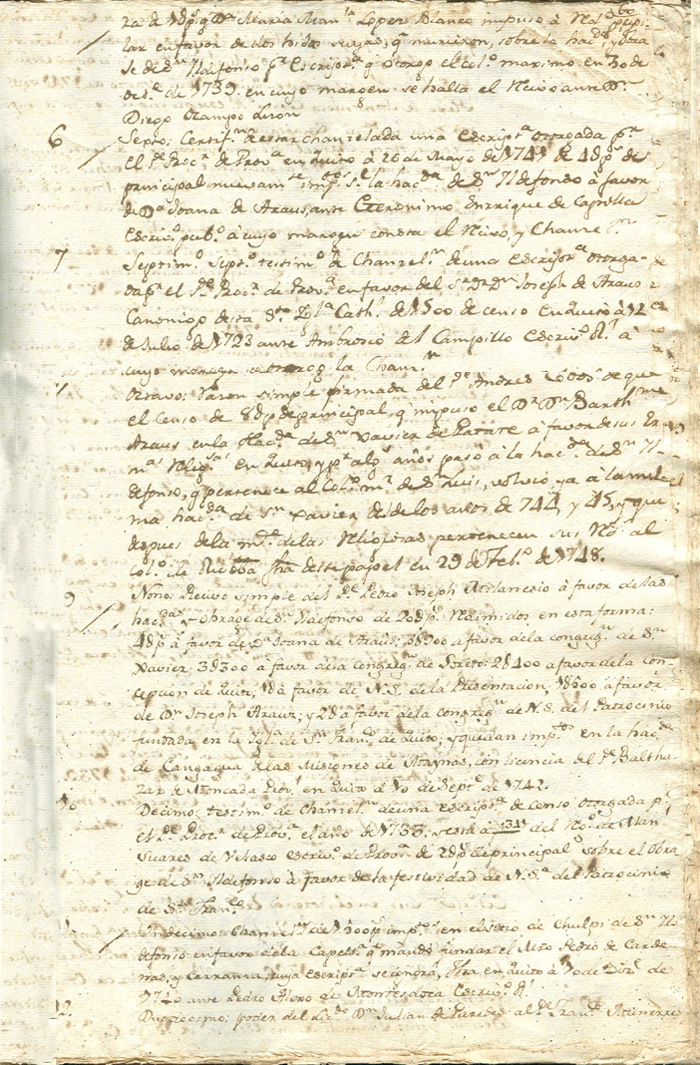 za de 1 dp.s q. Da. Maria Man.la Lopez Blanco impuso à
lar en favor de dos hijas suyas, q. murieron, sobre la hac.da y obra
je de S.n Ildefonso p.r Escript.a q. otorgo el Col.o maximo en 30 de
de 1739. en cuyo margen se halla el Recivo ante D.n
Diego Ocampo
6 Sexto: Certif.n de estar chanzelada una escript.a otorgada p.r
el P.e Proc.r de Prov.a en Quito à 26 de Mayo de 1741 de 4dp.s de
principal nuevam.te imp.tos s.e la hac.da de S.n Ildefonso â favor
de Da. Joana de Araus, ante Geronimo Enrriquez de
Escriv.o pub.o à cuyo margen consta el Recivo, y Chanc.n
7 Septim.o testim.o de Chanzel.n de una escript.a otorga-
da p.r el P.e Proc.r de Prov.a en favor del S.r D.r D.n Joseph de Araus
Canonigo desta S.ta Igl.a Cath.l de 1500 de censo en Quito à 12
de Julio de 1723 ante Ambrosio del Campillo Escriv.o R.l à
cuyo margen se otorgo la Chanz.n
Octavo: Razon simple firmada del P.e Andres Cobos de que
el Censo de 8dp.s de principal, q. impuso el D.r D.n Barth.me
Araus en la Hac.da de S.n Xavier de Patate à favor de sus Er
m.as Relig.sas en Quito, y p.r alg.s años pasó à la hac.da de S.n Il-
defonso, q. pertenece al Col.o m.o de S.n Luis, volvió ya à la mis
ma hac.da de S.n Xavier desde los años de 744, y 45, y que
despues de la m.te de las Religiosas pertenecen sus R.tos al
Col.o de Riobba. fha deste papel en 29 de Feb.o de 1748.
9 Nono: Recivo simple del P.e Pedro Joseph Milanesio à favor de las
hac.das y obrage de S.n Ildefonso de 20dp.s Redimidos en esta forma:
4dp.s â favor de Da. Joana de Araus; 3d500 a favor de la congreg.n de S.n
Xavier; 3d500 â favor de la Congreg.n de Loreto; 2d400 a favor de la Con-
cepcion de Quito; 1d â favor de N.S. de la Presentacion; 1d500 â favor
de D.n Joseph Araus; y 2d à favor de la congreg.n de N.S. del Patrocinio
fundada en la Igl.a de S.n Fran.co de Quito; y quedan imp.tos en la hac.da
de Cangagua de las Misiones de Maynas, con licencia del P.e Baltha-
zar de Moncada Prov.l en Quito à 10 de Sept.e de 1742.
10 Decimo: testim.o de Chanzel.n de una escript.a de Censo otorgada p.r
el P.e Proc.r de Prov.a el año de 1733, del R.o de Man.l
Suares de Velasco escriv.o de Prov.a de 2dp.s de principal sobre el Obra
ge de S.n Ildefonso à favor de la festividad de N.S.a del Patrocinio
de S.n Fran.co
Undecimo: Chancel.n de 1300p.s imp.tos en el sitio de Chulpi de S.n Il-
defonso en favor de la Capell.a q. mandó fundar el Mro Pedro de Carde
nas, y Cerrana, cuya escript.a se fha en Quito à 10 de Diz.e de
1740 ante Pedro de Montesdoca Escriv.o R.l
12. Duodecimo: poder del Lic.do D.n Julian de Paredes al P.e Fran.co